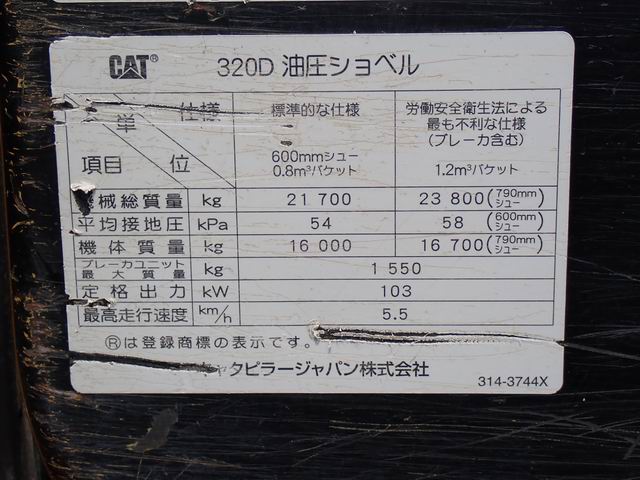 CAT® 320D 油圧ショベル
仕様
単
項目 位
標準的な仕様
600mmシュー
0.8m³バケット
労働安全衛生法による
最も不利な仕様
(ブレーカ含む)
1.2m³バケット
機械総質量 kg 21 700 23 800(790mmシュー)
平均接地圧 kPa 54 58 (600mmシュー)
機体質量 kg 16 000 16 700(790mmシュー)
ブレーカユニット最大質量 kg 1 550
定格出力 kW 103
最高走行速度 km/h 5.5
Ⓡは登録商標の表示です。
キャタピラージャパン株式会社
314-3744X